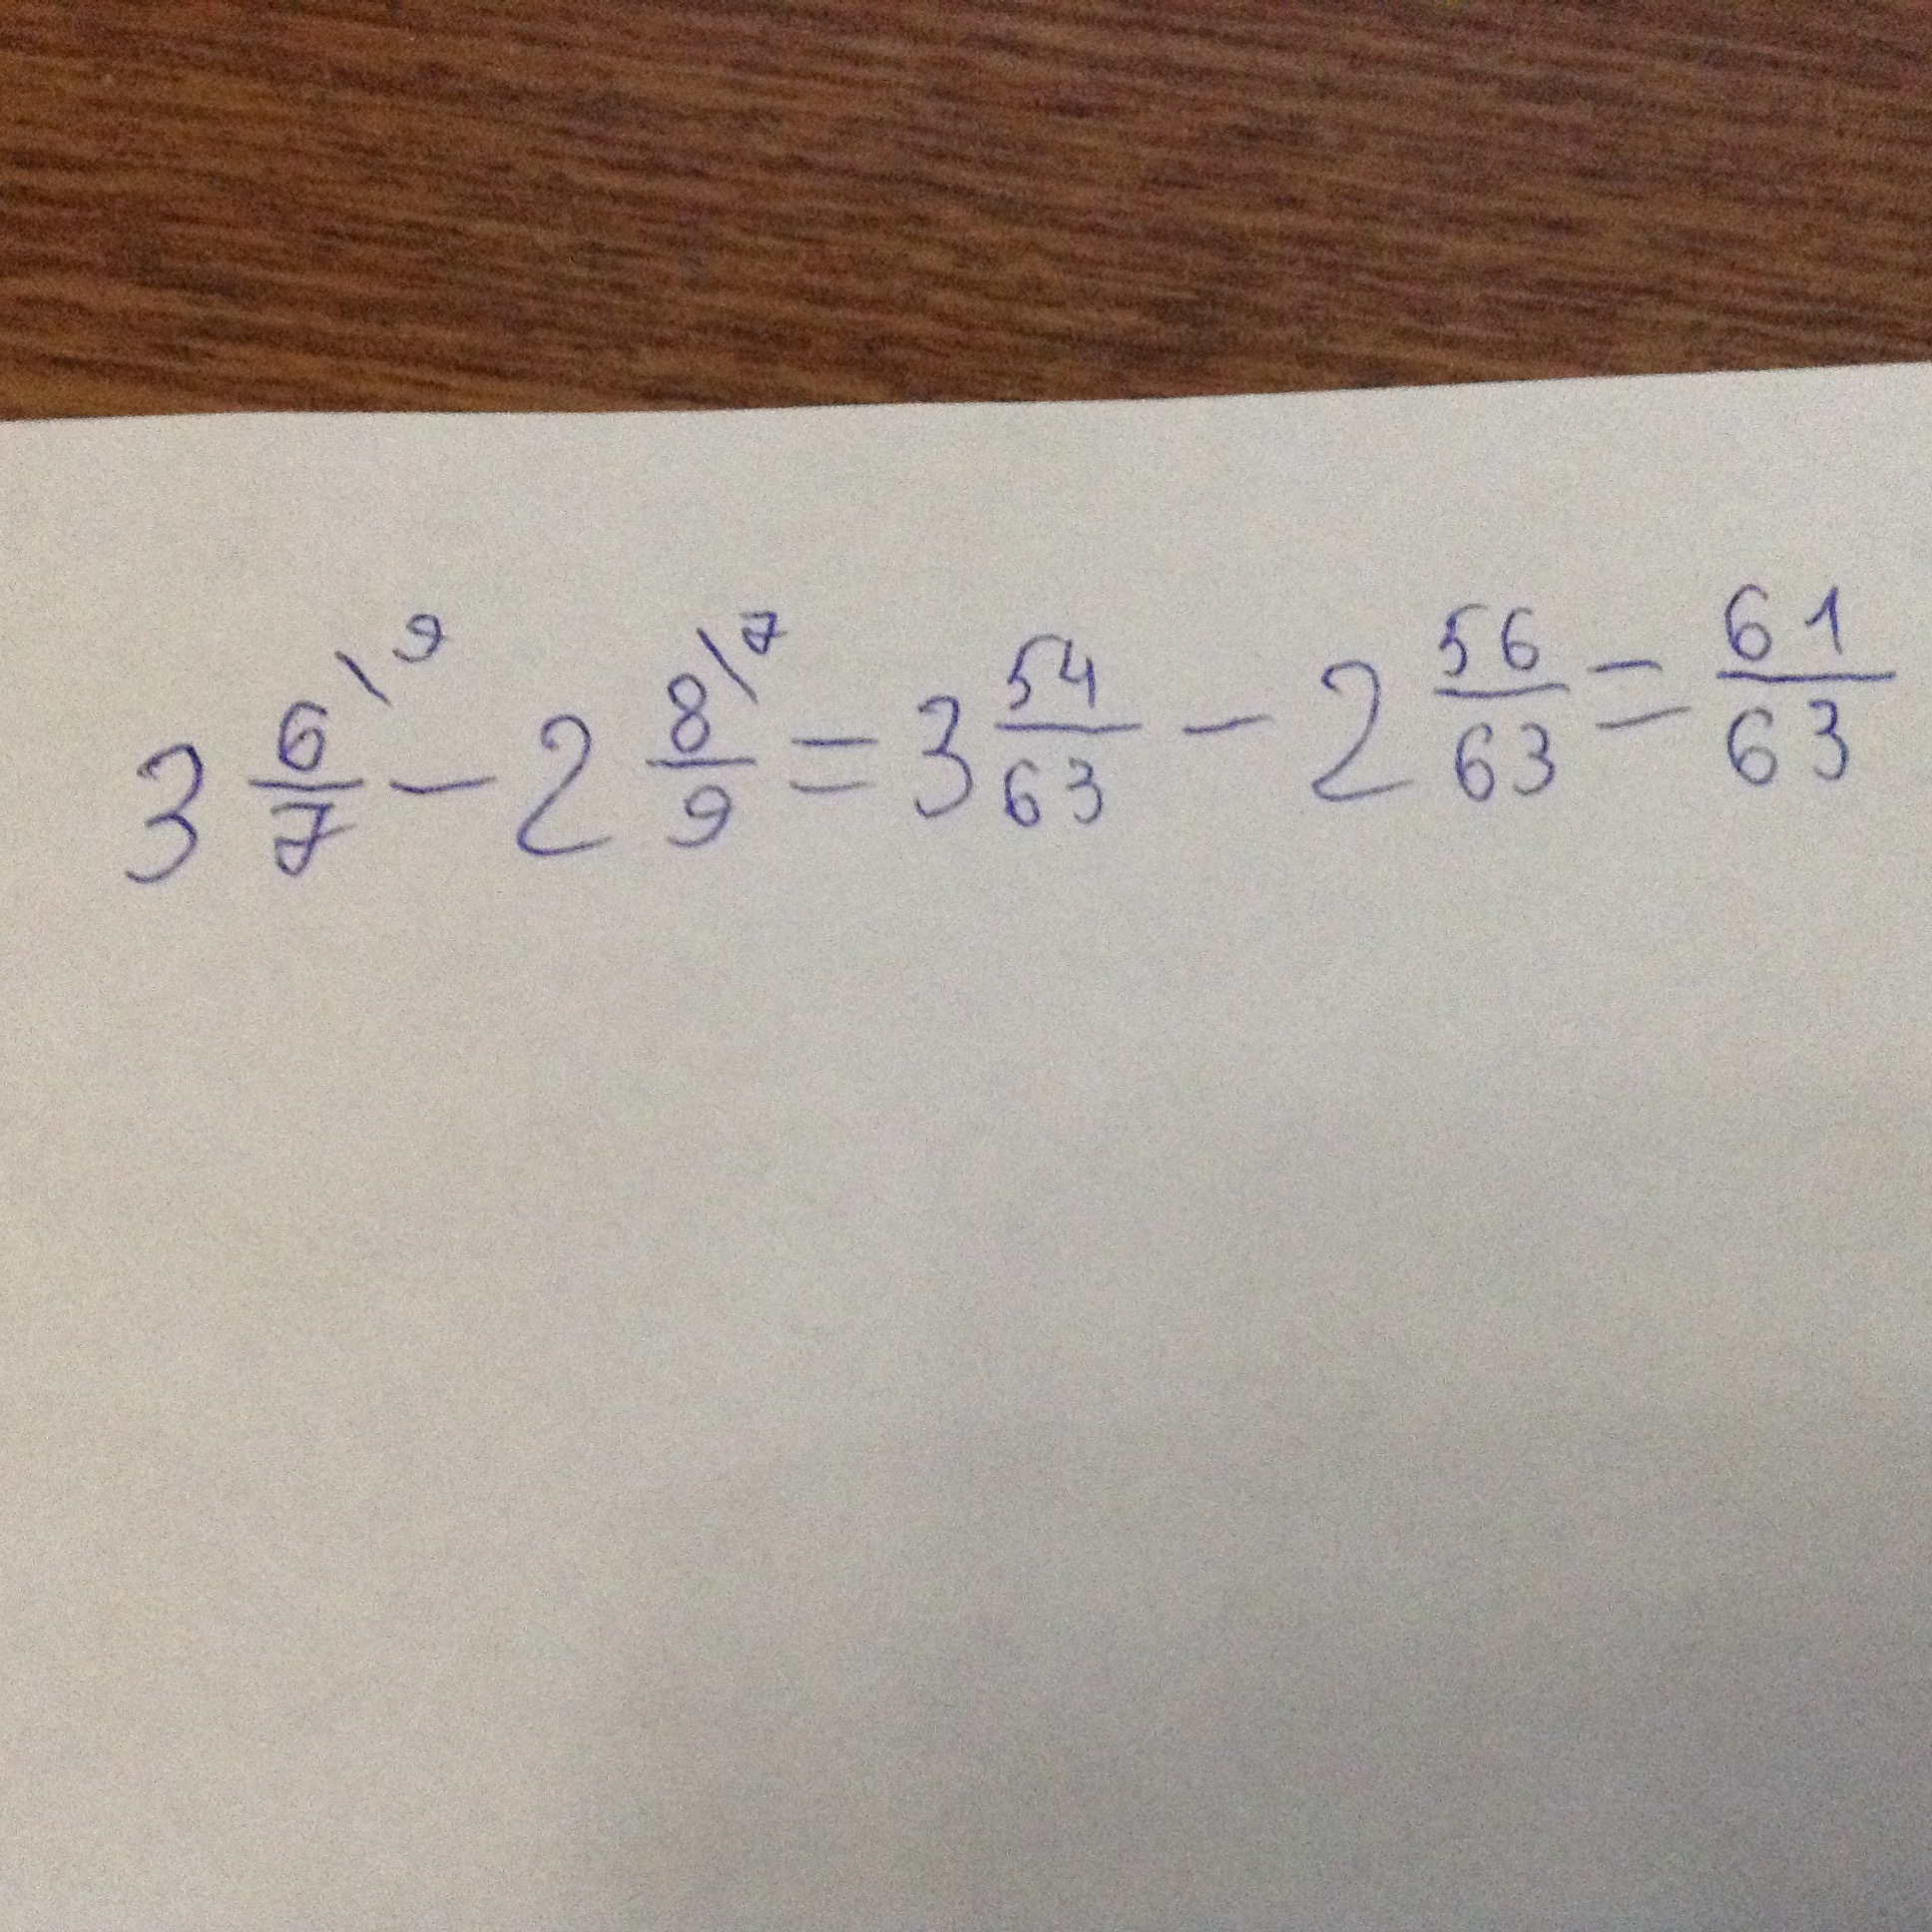 3 6/7 \9 - 2 8/9 \7 = 3 54/63 - 2 56/63 = 61/63